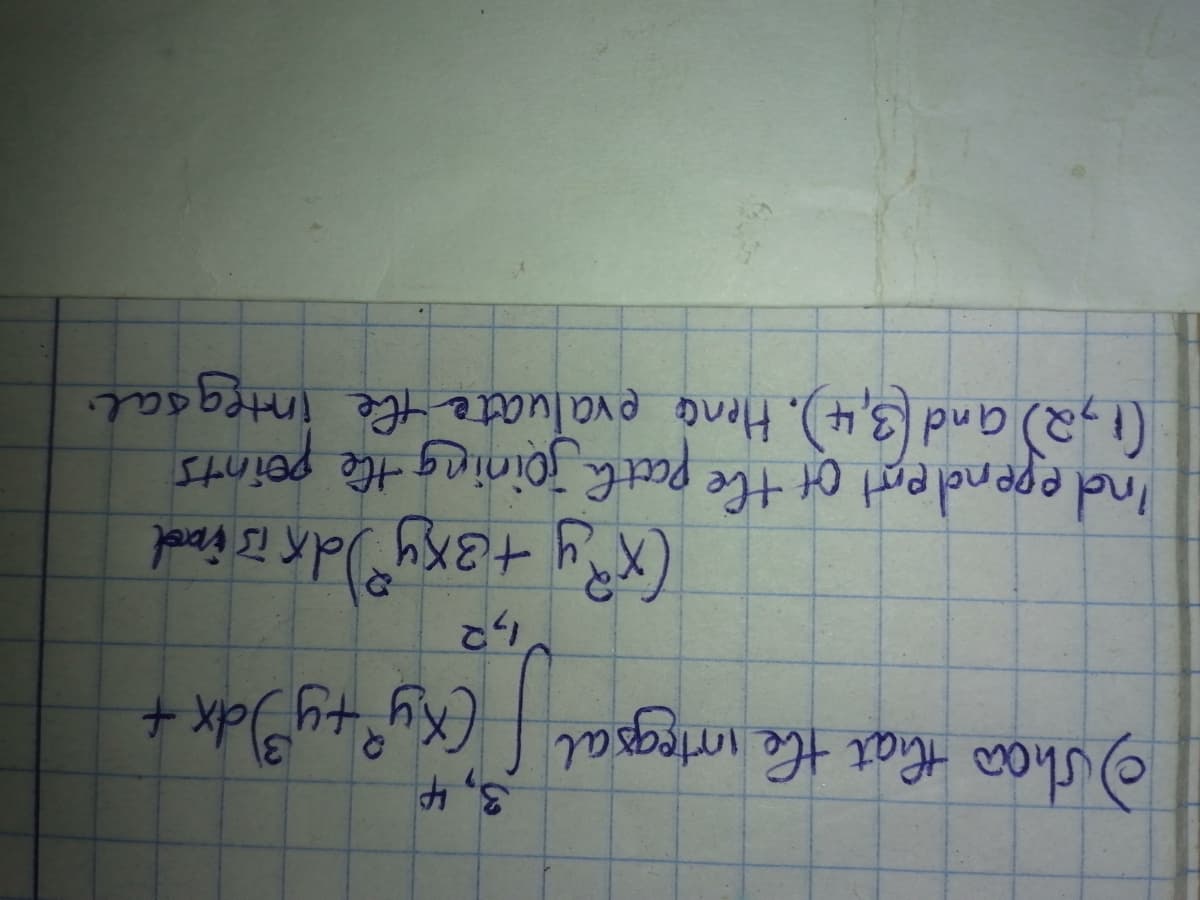 c) Show that the integral ∫_{1,2}^{3,4} (xy² + y³)dx +
(x²y + 3xy²)dx is ind
independent of the path joining the points
(1,2) and (3,4). Henc evaluate the integral.